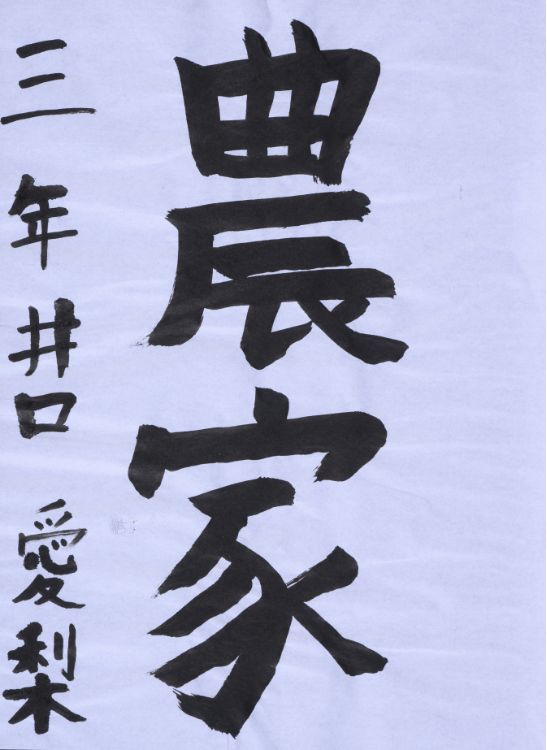 農家
三年 井口 愛梨